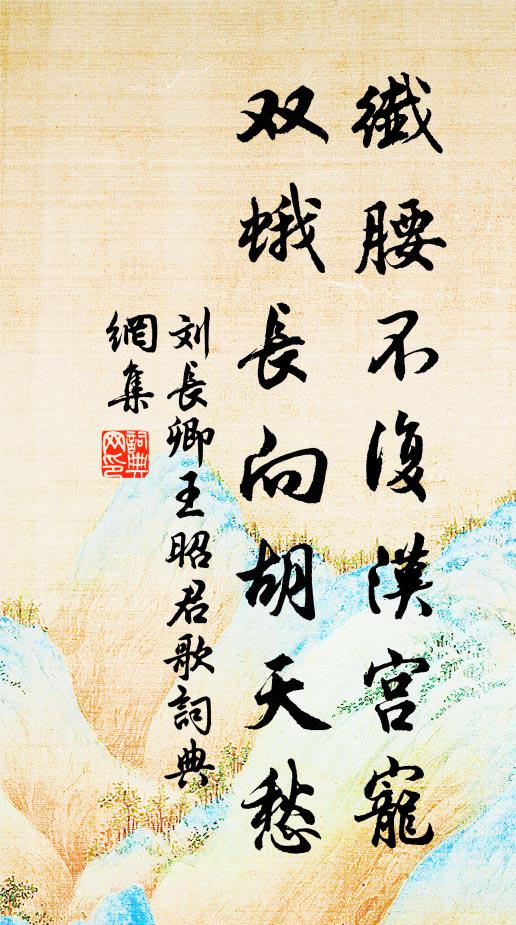 纖腰不復漢宮寵
双蛾長向胡天愁
刘長卿王昭君歌詞典
網集
詞典
网印